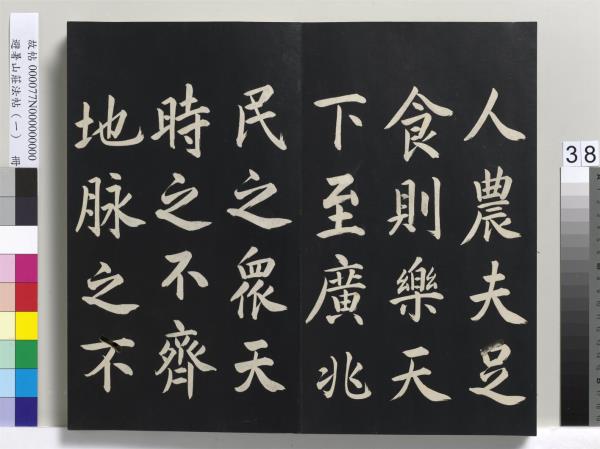 人農夫足
食則樂天
下至廣兆
民之眾天
時之不齊
地脉之不
故帖 000077N000000000
避暑山莊法帖（一） 冊
38